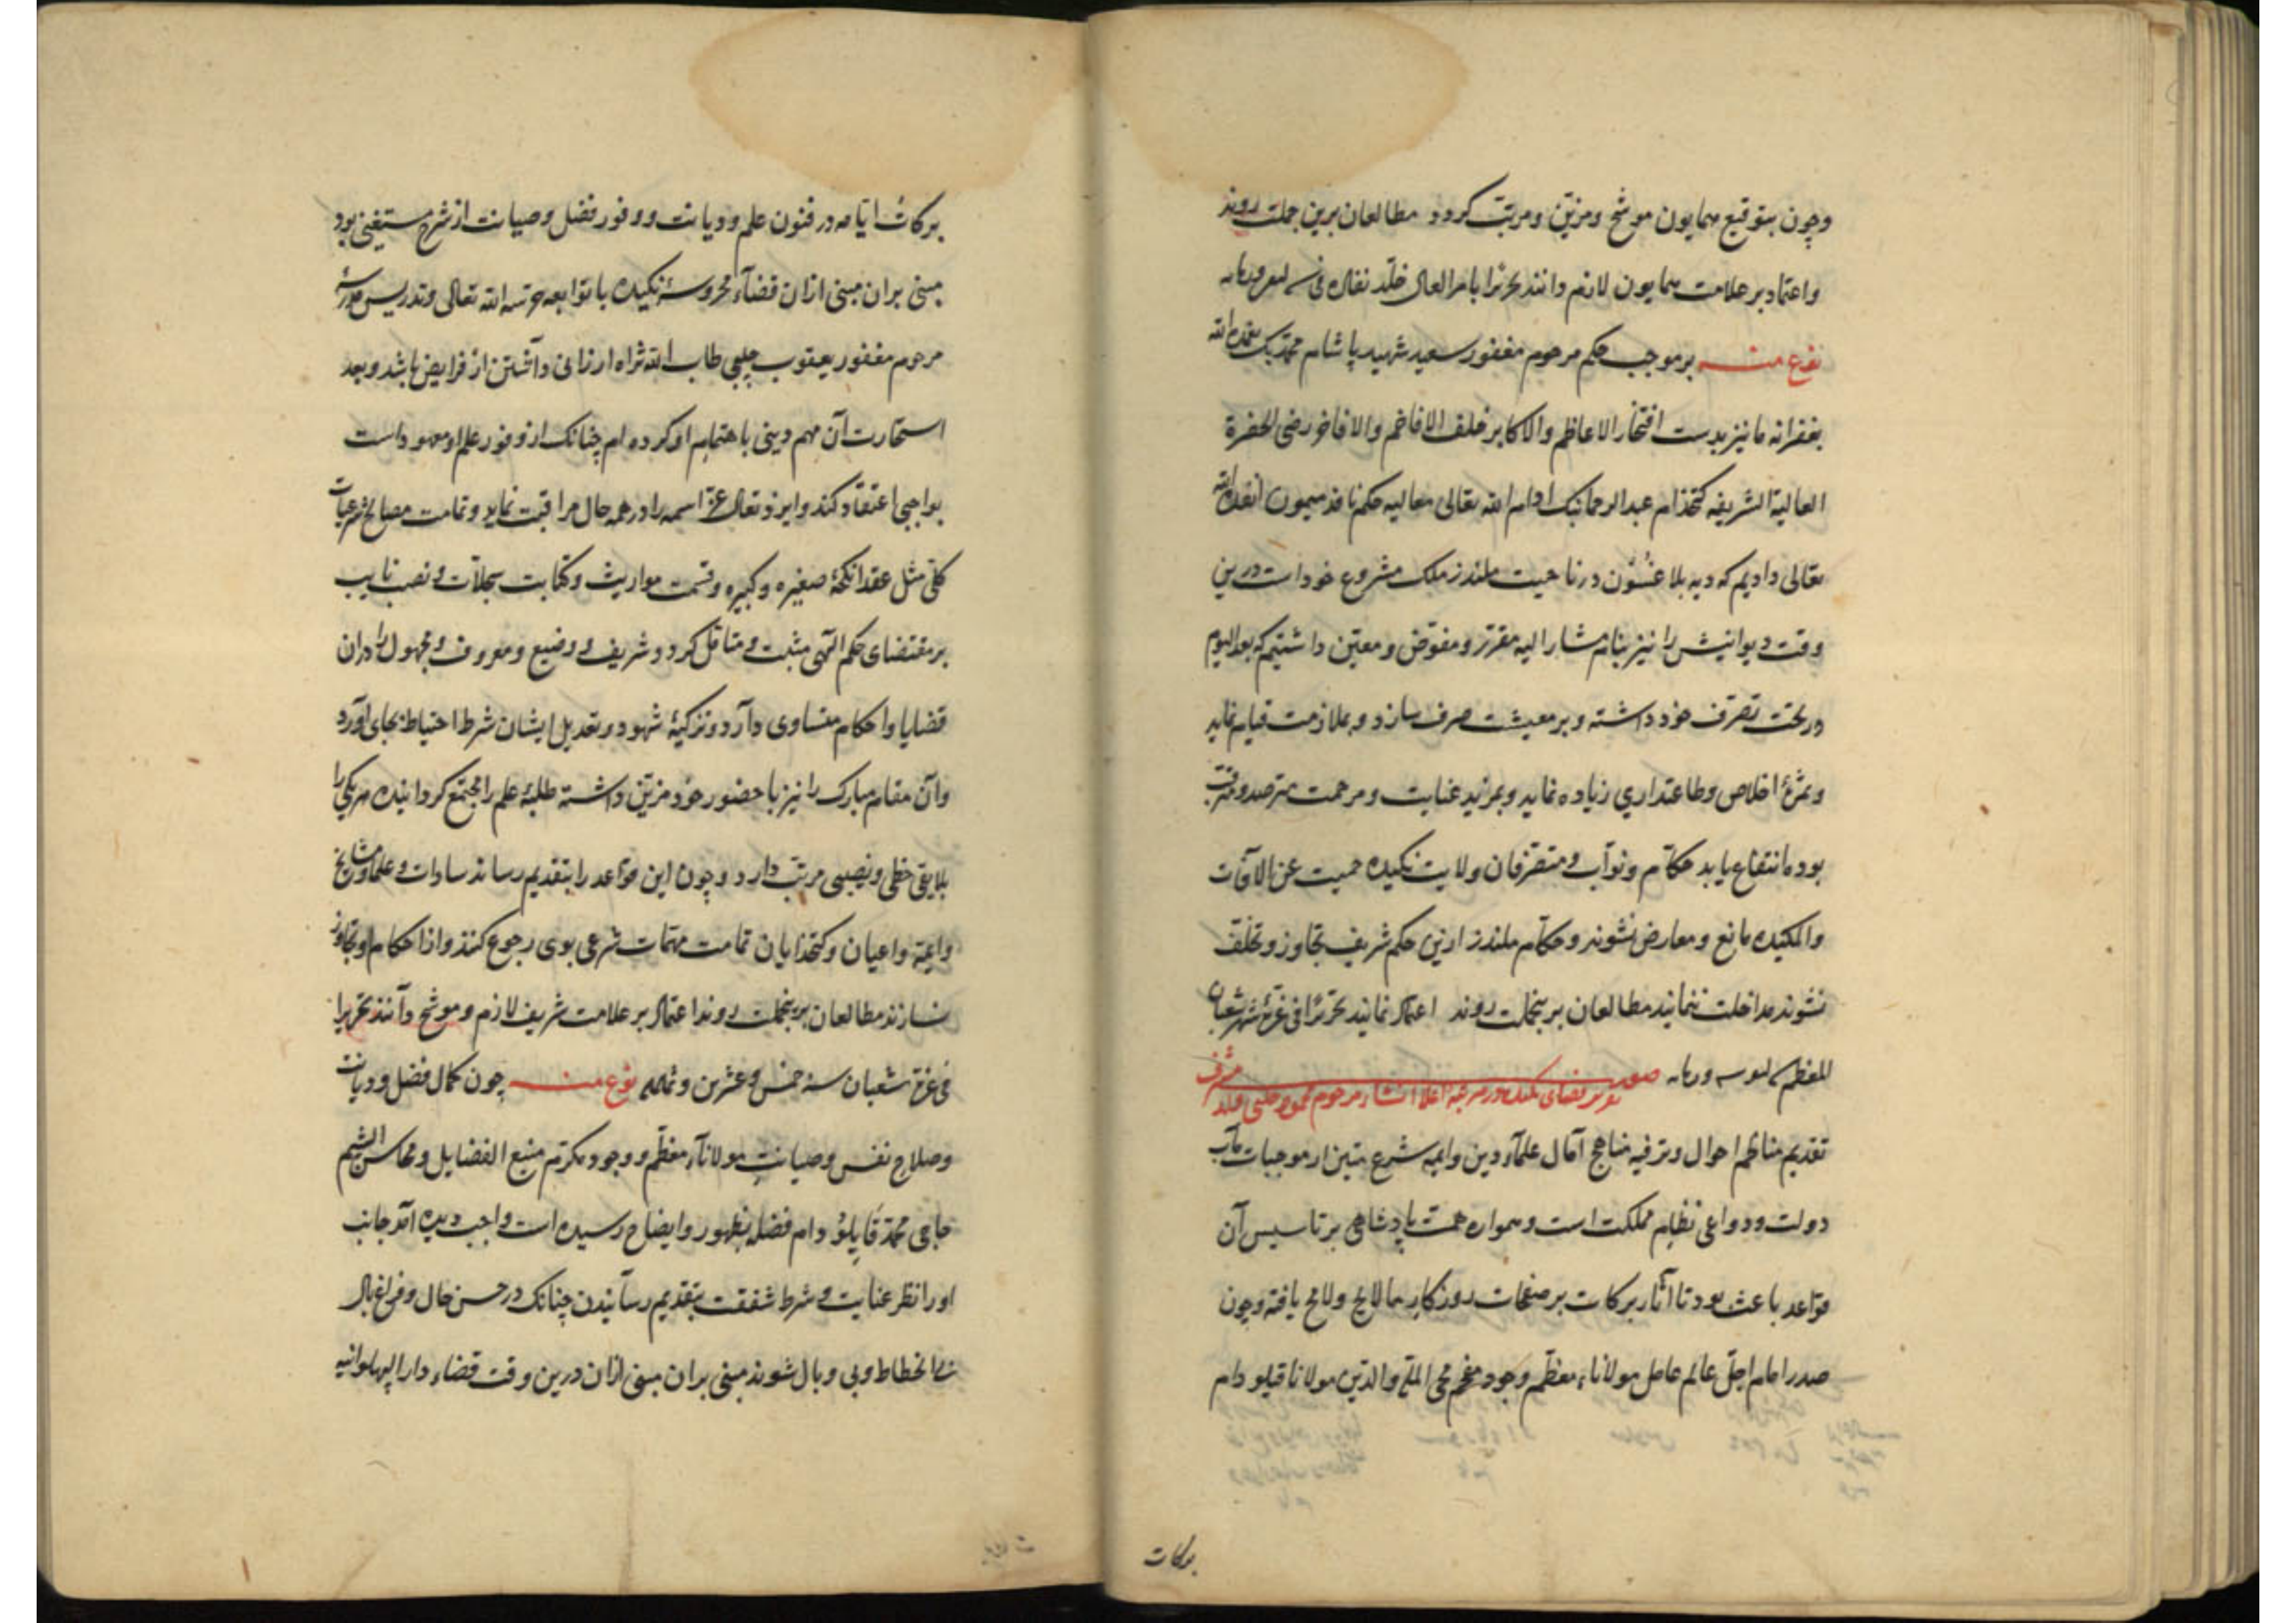 وچون بتوقیع همایون موشح ومزین ومرتب کردد مطالعان برین جملت روند
واعتماد بر علامت همایون لازم دانند تحریرا بامر العالی خلد نفاذه فی
نوع منه بر موجب حکم مرحوم مغفور سعید شهید پاشام محمد بک تغمده الله
بغفرانه ما نیز بدست افتخار الاعاظم والاکابر خلف الافاخم والافاخر رضی الحضرة
العالیة الشریفه کتخذام عبد الرحمانبک ادام الله تعالی معالیه حکم نافذ میمون انفذه الله
تعالی دادیم که دیه بلاغسون در ناحیت ملندز ملک مشروع خود است درین
وقت دیوانیش را نیز بنام مشار الیه مقرر ومفوض ومعین داشتیم که بعد الیوم
در تحت تصرف خود داشته وبر معیشت صرف سازد وبملازمت قیام نماید
وثمرۀ اخلاص وطاعتداری زیاده نماید وبمزید عنایت ومرحمت مترصد ومترقب
بوده انتفاع یابد حکام ونواب ومتصرفان ولایت نکیده حمیت عن الآفات
والمکیده مانع ومعارض نشوند وحکام ملندز ازین حکم شریف تجاوز وتخلف
نشوند مداخلت ننمایند مطالعان برینجملت روند اعتماد نمایند تحریرا فی غرۀ شهر شعبان
المعظم صورت
تقریر قضای نکیده در مرتبه اعلا انشاء مرحوم محمود چلبی مشرف
تقدیم مناظم احوال وترفیه مناهج آمال علماء دین وایمه شرع متین از موجبات مآب
دولت ودواعی نظام مملکت است وهمواره همت پادشاهی بر تاسیس آن
قواعد باعث بود تا آثار برکات بر صفحات روزکار ما لایح ولامح یافته وچون
صدر امام اجل عالم عامل مولاناء معظم وجود مفخم محی الملة والدین مولانا قیلو دام
برکات
برکات ایامه در فنون علم ودیانت ووفور فضل وصیانت از شرح مستغنی بود
مبنی بران مبنی ازان قضاء محروسۀ نکیده با توابعه حرسه الله تعالی وتدریس مدرسۀ
مرحوم مغفور یعقوب چلبی طاب الله ثراه ارزانی داشتن از فرایض باشد وبعد
استخارت آن مهم دینی باهتمام او کرده ام چنانک از وفور علم او معهود است
بواجبی اعتقاد کند وایزد تعالی عز اسمه را در همه حال مراقبت نماید وتمامت مصالح شرعیات
کلی مثل عقد انکحۀ صغیره وکبیره وقسمت مواریث وکتابت سجلات ونصب نایب
بر مقتضای حکم الهی مثبت ومتاقل کردد وشریف ووضیع ومعروف ومجهول را دران
قضایا واحکام متساوی دارد وتزکیۀ شهود وتعدیل ایشان شرط احتیاط بجای آورد
وآن مقام مبارک را نیز با حضور خود مزین داشته طلبۀ علم را مجتمع کردانیده هر یکی را
بلایقی حظی ونصیبی مرتب دارد وچون این قواعد را بتقدیم رساند سادات وعلما ومشایخ
وایمه واعیان وکتخدایان تمامت مهمات شرعی بوی رجوع کنند واز احکام او تجاوز
نسازند مطالعان برینجملت روند اعتماد بر علامت شریف لازم وموشح دانند تحریرا
فی غرة شعبان سنه خمس وعشرین وثمانمایه نوع منه چون کمال فضل ودیانت
وصلاح نفس وصیانت مولاناء معظم ووجود مکرم منبع الفضایل ومحاسن الشیم
حاجی محمد قاپلو دام فضله بظهور وایضاح رسیده است واجب دیده آمد جانب
او را نظر عنایت وشرط شفقت بتقدیم رسانیدن چنانک در حسن حال وفراغ بال
بی انحطاط وبی وبال شوند مبنی بران مبنی ازان درین وقت قضاء دار البهلوانیه